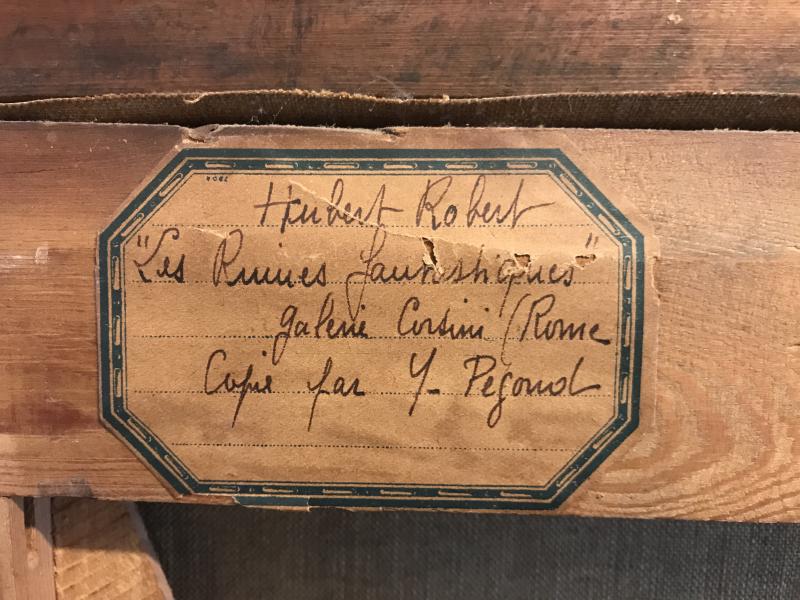 Hubert Robert
"Les Ruines fantastiques"
Galerie Corsini / Rome
Copie par Y. Pegoud